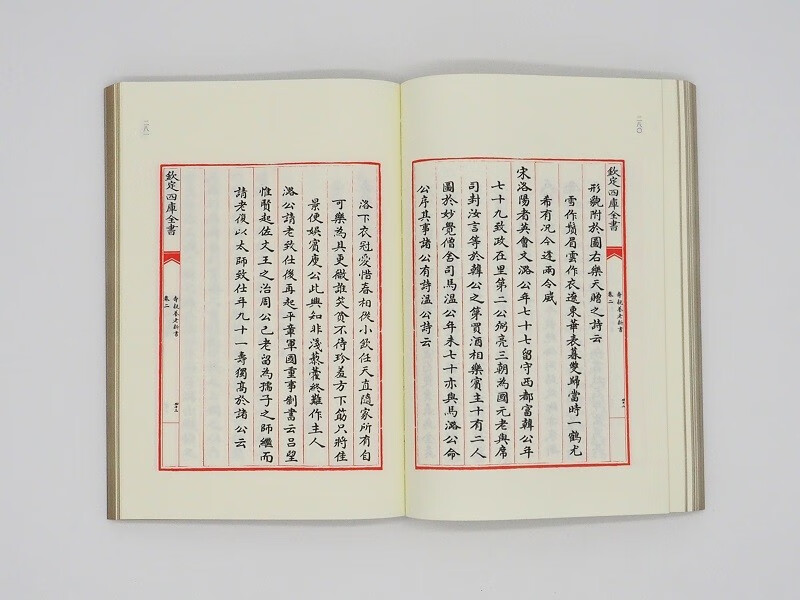 二八〇
欽定四庫全書
壽親養老新書
卷二
形貌附於圖右樂天贈之詩云
雪作鬚眉雲作衣遼東華表暮雙歸當時一鶴尤
希有况今逢兩令威
宋洛陽耆英會文潞公年七十七留守西都富韓公年
七十九致政在里第二公弼亮三朝為國元老與席
司封汝言等於韓公之第買酒相樂賓主十有二人
圖於妙覺僧舍司馬溫公年未七十亦與焉潞公命
公序其事諸公有詩溫公詩云
洛下衣冠愛惜春相從小飲任天真隨家所有自
可樂為具更微誰笑貧不待珍羞方下筯只將佳
景便娛賓庾公此興知非淺藜藿終難作主人
潞公請老致仕後再起平章軍國重事制書云呂望
惟賢起佐文王之治周公已老留為孺子之師繼而
請老復以太師致仕年九十一壽獨高於諸公云
欽定四庫全書
壽親養老新書
卷二
二八一